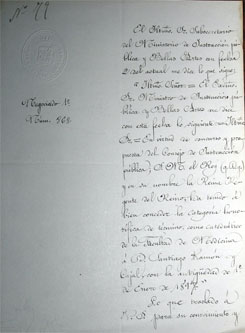 Nº 79
Negociado 11
Núm. 568
El Ilmo. Sr. Subsecretario
del Ministerio de Instrucción pú-
blica y Bellas Artes en fecha
del actual me dice lo que sigue:
"Ilmo. Señor: El Excmo.
Sr. Ministro de Instrucción pú-
blica y Bellas Artes me dice
con esta fecha lo siguiente: Ilmo.
Sr.: En virtud de concurso y pro-
puesta del Consejo de Instrucción
pública; S. M. el Rey (q. D. g.)
y en su nombre la Reina Re-
gente del Reino, ha tenido á
bien conceder la categoría hono-
rífica de término, como catedrático
de la Facultad de Medicina
á D. Santiago Ramón y
Cajal, con la antigüedad de 1º
de Enero de
Lo que traslado á
V. S. para su conocimiento y